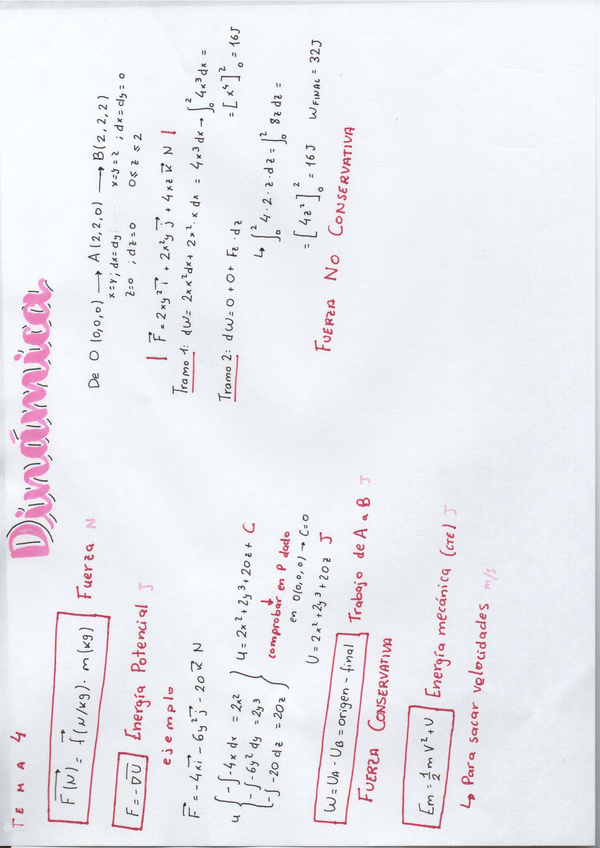 TEMA 4
Dinámica
F⃗(N) = f⃗(N/kg) · m(kg) Fuerza N
F = -∇⃗U Energía Potencial J
ejemplo
F⃗ = -4xi⃗ - 6y²j⃗ - 20k⃗ N
u { -∫-4x dx = 2x²
-∫-6y² dy = 2y³
-∫-20 dz = 20z } U = 2x² + 2y³ + 20z + C
comprobar en P dado
en O(0,0,0) → C=0
U = 2x² + 2y³ + 20z J
W = UA - UB = origen - final Trabajo de A a B J
FUERZA CONSERVATIVA
Em = ½ m V² + U Energía mecánica (CTE) J
↳ Para sacar velocidades m/s
De O (0,0,0) → A(2,2,0) → B(2,2,2)
x=y; dx=dy x=y=2 ; dx=dy=0
z=0 ; dz=0 0≤z≤2
| F⃗ = 2xy² i⃗ + 2x²y j⃗ + 4xz k⃗ N |
Tramo 1: dW = 2xx²dx + 2x²·x dx = 4x³dx → ∫₀² 4x³dx =
= [x⁴]₀² = 16J
Tramo 2: dW = 0 + 0 + Fz·dz
↳ ∫₀² 4·2·z·dz = ∫₀² 8z dz =
= [4z²]₀² = 16J WFINAL = 32J
FUERZA NO CONSERVATIVA